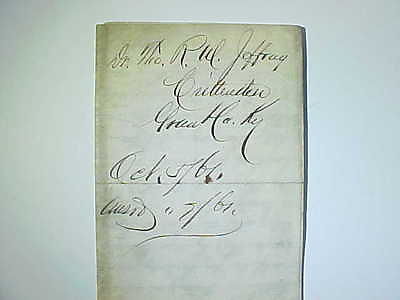 Dr. Tho. R. W. Jeffray
Crittenden
Grant Co. Ky
Oct. 5/61.
Answd " 7/61.